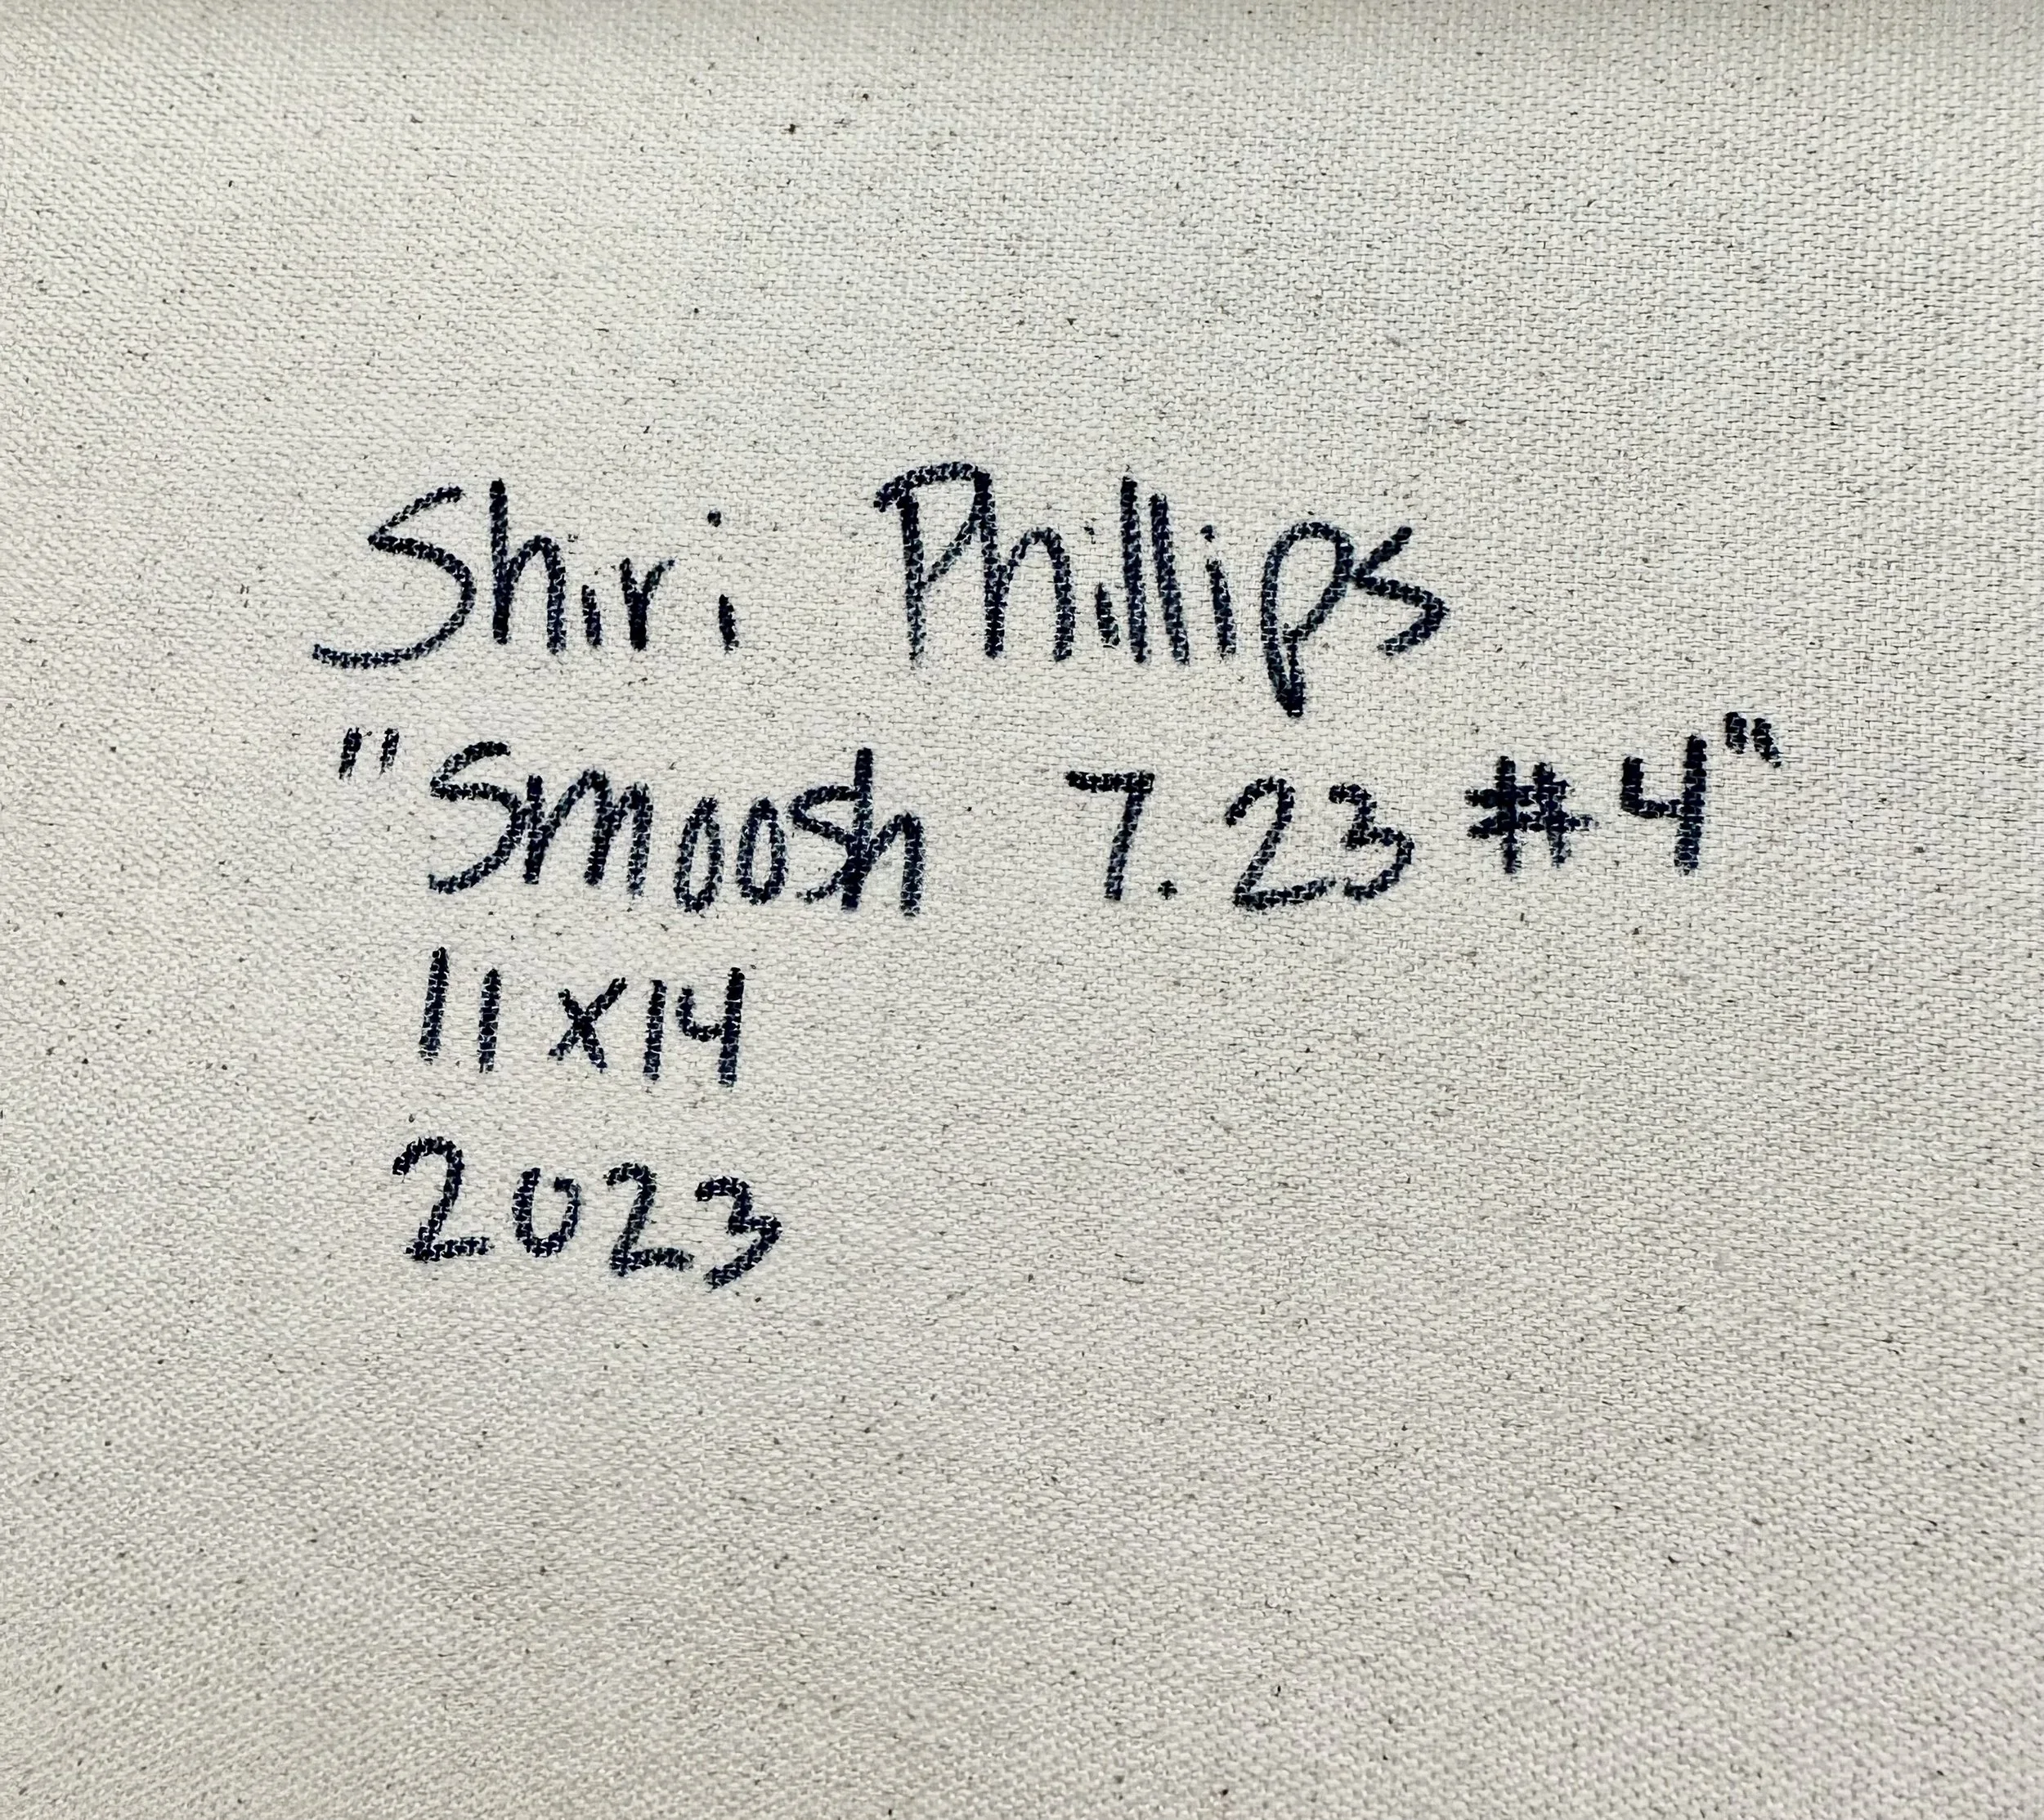 Shiri Phillips
"Smoosh 7.23 #4"
11x14
2023